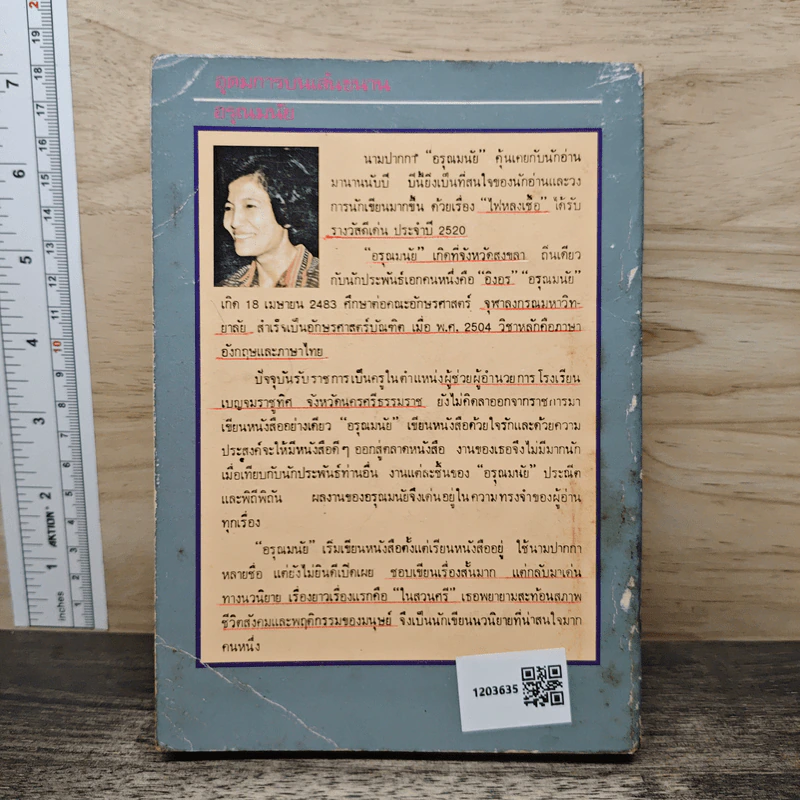 อุดมการบนเส้นขนาน
อรุณมนัย
นามปากกา “อรุณมนัย” คุ้นเคยกับนักอ่าน
มานานนับปี ปีนี้ยิ่งเป็นที่สนใจของนักอ่านและวง
การนักเขียนมากขึ้น ด้วยเรื่อง “ไฟหลงเชื้อ” ได้รับ
รางวัลดีเด่น ประจำปี 2520
“อรุณมนัย” เกิดที่จังหวัดสงขลา ถิ่นเดียว
กับนักประพันธ์เอกคนหนึ่งคือ “อิงอร” “อรุณมนัย”
เกิด 18 เมษายน 2483 ศึกษาต่อคณะอักษรศาสตร์ จุฬาลงกรณมหาวิท-
ยาลัย สำเร็จเป็นอักษรศาสตร์บัณฑิต เมื่อ พ.ศ. 2504 วิชาหลักคือภาษา
อังกฤษและภาษาไทย
ปัจจุบันรับราชการเป็นครูในตำแหน่งผู้ช่วยผู้อำนวยการโรงเรียน
เบญจมราชูทิศ จังหวัดนครศรีธรรมราช ยังไม่คิดลาออกจากราชการมา
เขียนหนังสืออย่างเดียว “อรุณมนัย” เขียนหนังสือด้วยใจรักและด้วยความ
ประสงค์จะให้มีหนังสือดีๆ ออกสู่ตลาดหนังสือ งานของเธอจึงไม่มีมากนัก
เมื่อเทียบกับนักประพันธ์ท่านอื่น งานแต่ละชิ้นของ “อรุณมนัย” ประณีต
และพิถีพิถัน ผลงานของอรุณมนัยจึงเด่นอยู่ในความทรงจำของผู้อ่าน
ทุกเรื่อง
“อรุณมนัย” เริ่มเขียนหนังสือตั้งแต่เรียนหนังสืออยู่ ใช้นามปากกา
หลายชื่อ แต่ยังไม่ยินดีเปิดเผย ชอบเขียนเรื่องสั้นมาก แต่กลับมาเด่น
ทางนวนิยาย เรื่องยาวเรื่องแรกคือ “ในสวนศรี” เธอพยายามสะท้อนสภาพ
ชีวิตสังคมและพฤติกรรมของมนุษย์ จึงเป็นนักเขียนนวนิยายที่น่าสนใจมาก
คนหนึ่ง
1203635
AKTION
inches
1
2
3
4
5
6
7
1
2
3
4
5
6
7
8
9
10
11
12
13
14
15
16
17
18
19